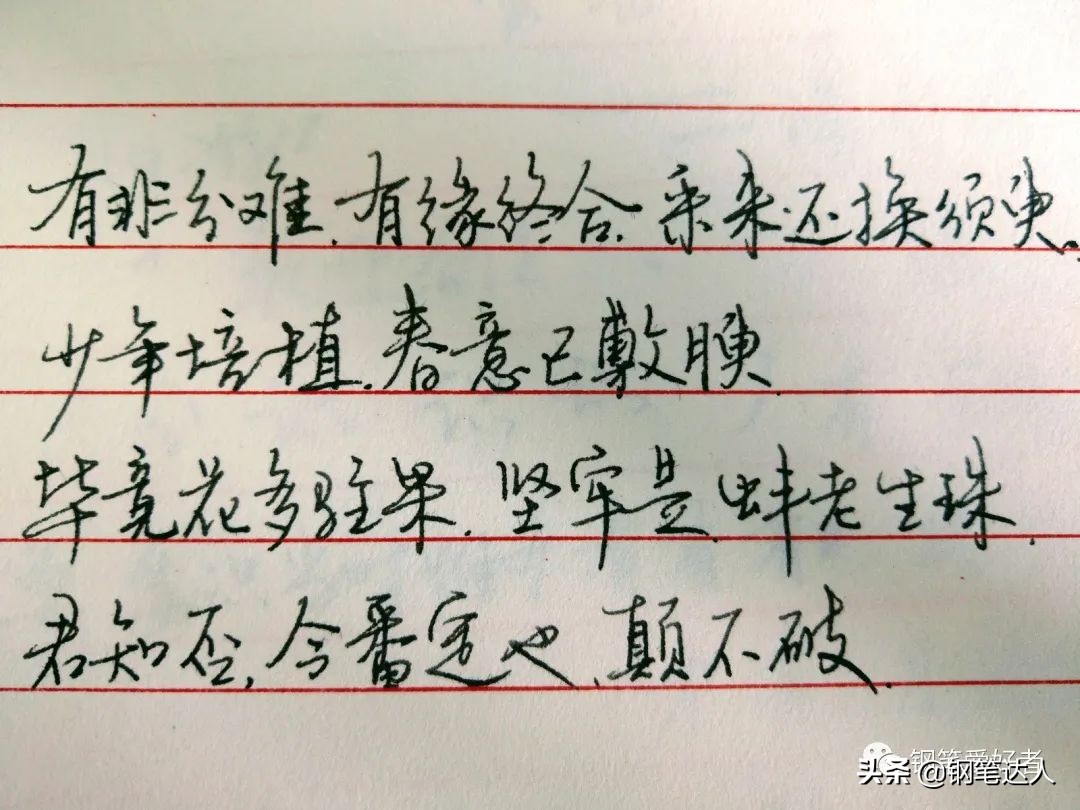 有非分难.有缘终合.采来还换须臾.
少年培植.春意已敷腴
毕竟花多驻果.坚牢是.蚌老生珠.
君知否,今番定也.颠不破.
钢笔爱好者
头条 @钢笔达人